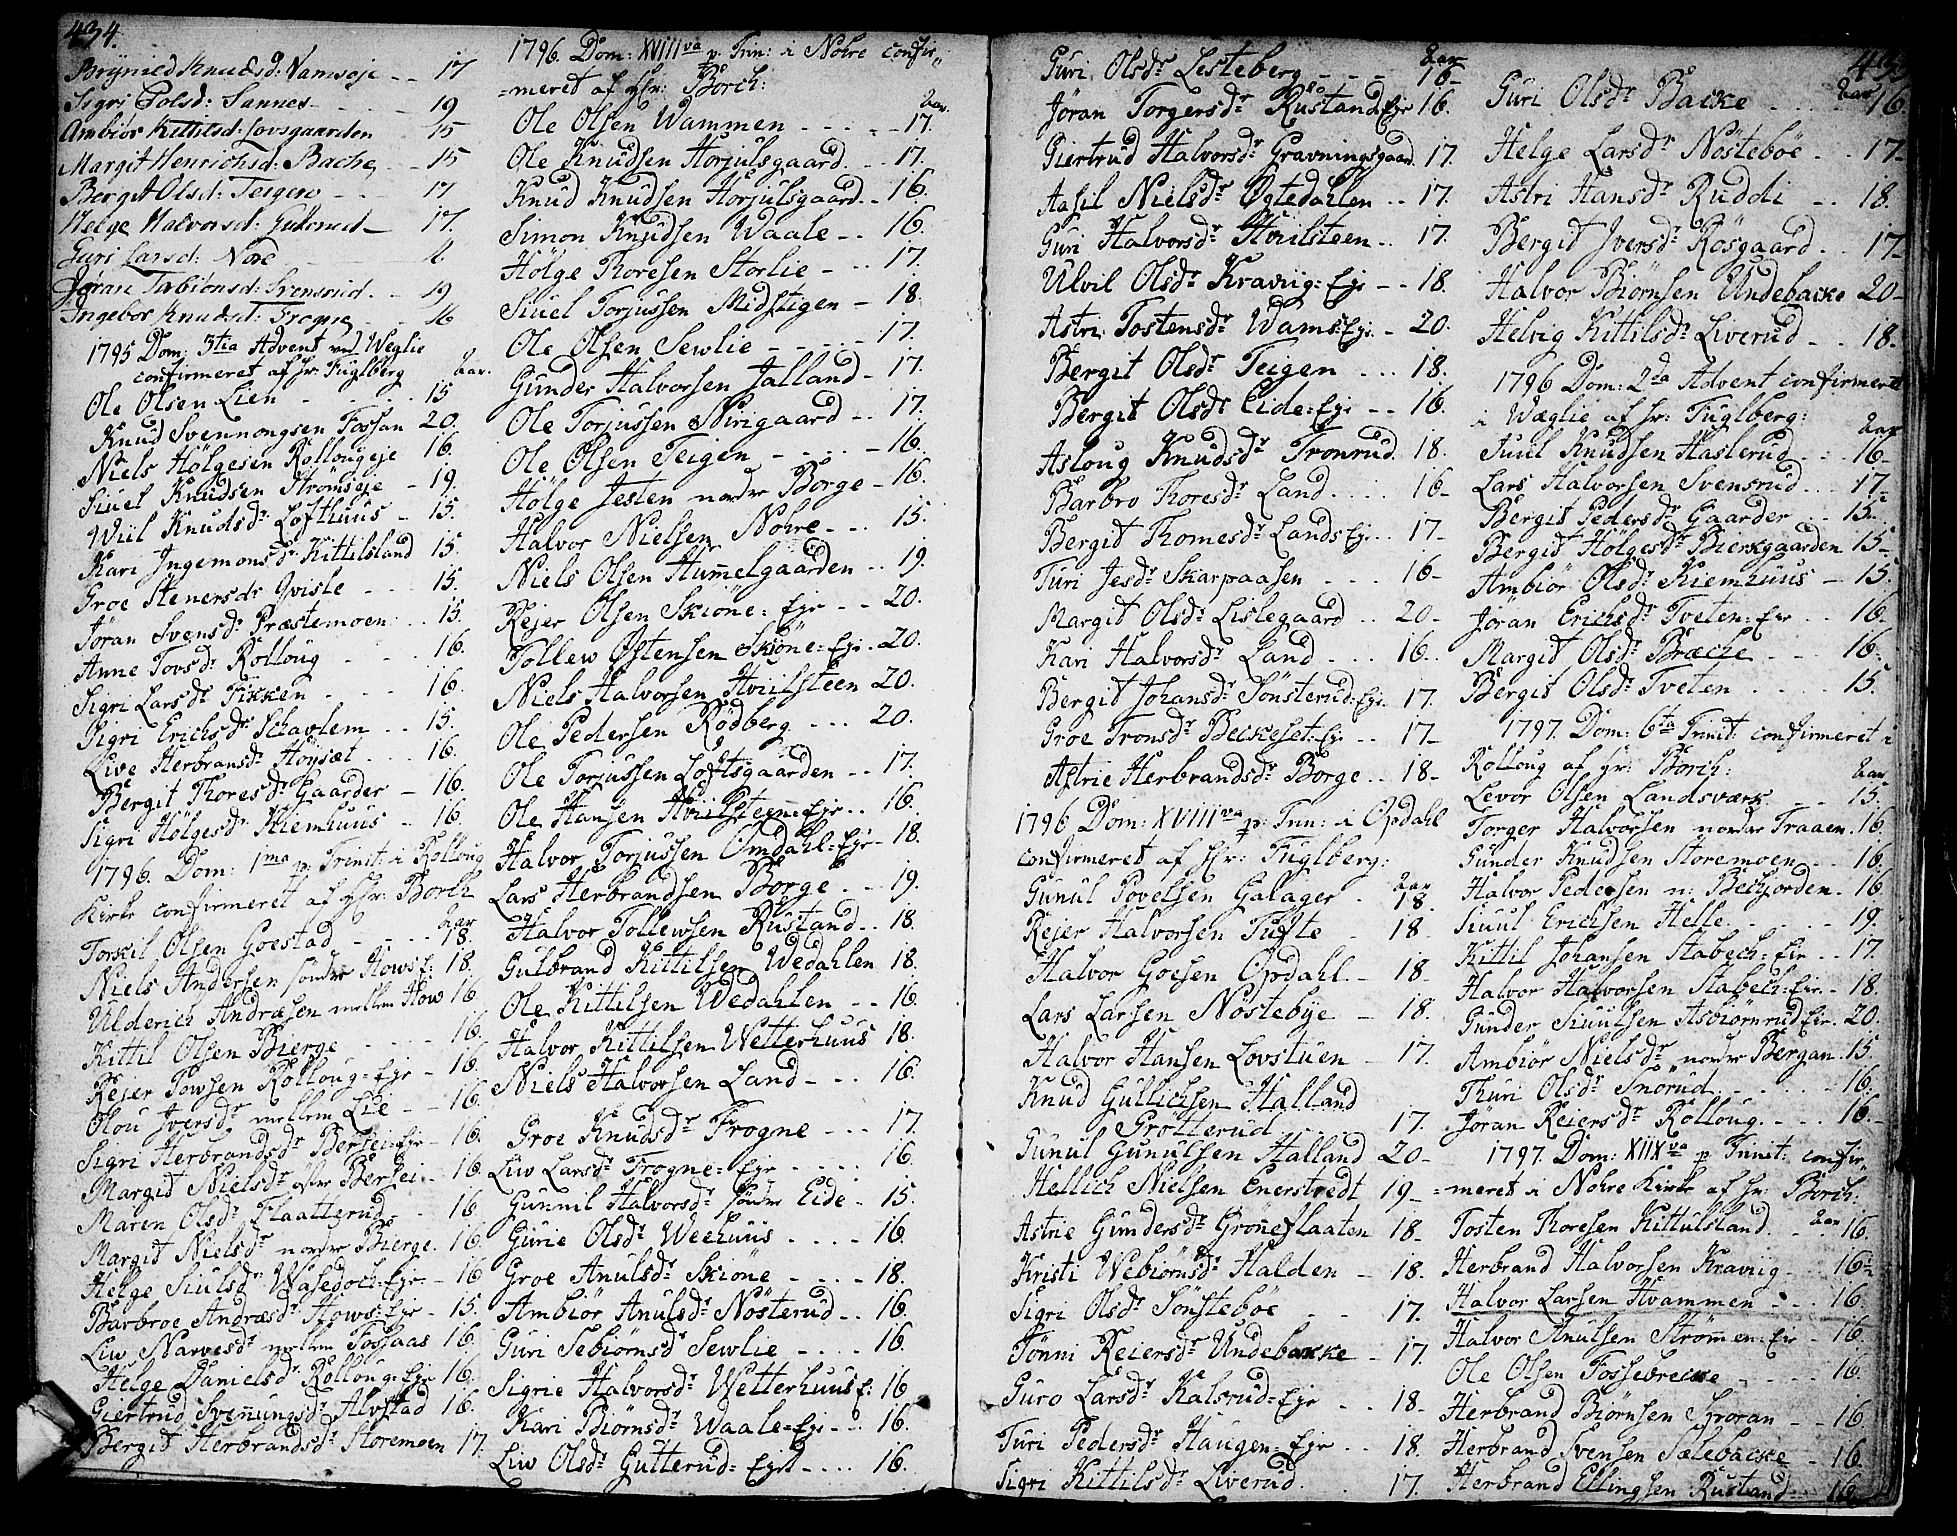 434.
Brynild Knudsd: Namsøje -- 17
Sigri Colsd: Sannes - - - 19
Ambiør Kittilsd: Lovsgaarden 15
Margit Henrichsd: Bache - - 15
Bergit Olsd: Teigen - - 17
Helge Halvorsd: - 17.
Guri Larsd: Nore
Jøran Tabiönsd: Svensrud. - 19
Ingebor Knudsd: Frogne 16
1795 Dom: 3tia Advent ved Weglie
confirmeret af hr: Fuglberg aar.
Ole Olsen Lien - - - - 15
Knud Svennongsen Fossan 20.
Niels Hölgesen Rollougeje 16.
Siuel Knudsen Strömseje - 19.
Wiil Knudsdr. Lofthuus - 15.
Kari Ingemonsdr Kittilsland 15.
Groe Stenersdr Qvisle - - - 15.
Jöran Svensdr: Præstemoen - 15.
Anne Tovsdr Rolloug - - - 16.
Sigri Larsdr Fikken - - - 16.
Sigri Erichsdr Schavlem - - 15.
Live Herbransdr Höysæt - - - 16.
Bergit Thoresdr Gaarder - 16.
Sigri Hölgesdr Kiemhuus - - 16.
1796. Dom: 1ma p: Trinit: i Rolloug
Kirke confirmeret af Hhr: Borch
aar
Torkil Olsen Goestad - - - - 18.
Niels Andersen söndre Howsf: 18.
Ulderich Andræsen mellem How 16
Kittil Olsen Bierge - - - - 16.
Rejer Towsen Rolloug=Eje - 16.
Olou Iversdr mellem Lie - - 16.
Sigri Herbrandsdr Bersei=Eje - 16.
Margit Nielsdr öfre Bersei - 16.
Maren Olsdr Flaatterud - - 16
Margit Nielsdr nordre Bierge. 16.
Helge Siulsdr Wasedoch=Eje - 16
Barbroe Andræsdr Hows=Eje - 15.
Liw Narvesdr mellem Fossaas 16.
Helge Danielsdr Rolloug=Eje 16.
Giertrud Svennungsdr Alvstad 16.
Bergit Herbrandsdr. Storemoen 17.
1796. Dom: XVIIIva p. Trin: i Nohre confir„
=meret af Hhr: Borch:
aar.
Ole Olsen Wammen - - - - 17.
Ole Knudsen Horjulsgaard. - - 17.
Knud Knudsen Horjulsgaard. - 16.
Simon Knudsen Waale - - 16.
Hölge Thoresen Storlie - - - 17.
Siuel Torjussen Midstigen - 18.
Ole Olsen Sewlie - - - - 17.
Gunder Halvorsen Jalland - 17.
Ole Torjussen Nirigaard - - 17.
Ole Olsen Teigen - - - - 16.
Hölge Jesten nordre Borge - 16.
Halvor Nielsen Nohre - - - 15.
Niels Olsen Hummelgaarden - - 19.
Rejer Olsen Skiöne=Eje - - 20.
Tollew Östensen Skiöne=Eje - 20.
Niels Halvorsen Hviilsteen 20.
Ole Pedersen Rödberg - - - 20.
Ole Torjussen Loftsgaarden - - 17.
Ole Hansen Hviilsteen=Eje - - 16.
Halvor Torjussen Omdahl=Eje - 18.
Lars Herbrandsen Borge - - 19.
Halvor Tollewsen Rustand. - 18.
Gulbrand Kittilsen Wedahlen 18.
Ole Kittilsen Wedahlen - - 16.
Halvor Kittilsen Wetterhuus 18.
Niels Halvorsen Land - - - 16.
Groe Knudsdr Frogne - - - 17.
Liw Larsdr Frogne=Eje - - - - 16.
Gunnil Halvorsdr söndre Eide - 15.
Gurie Olsdr Weehuus - - - - 16.
Groe Anulsdr Skiöne - - - - 18.
Ambiör Anulsdr Nösterud - - 16.
Guri Sebiörnsd Sewlie - - - - 16.
Sigrie Halvorsdr Wetterhuus E: 16
Kari Biörnsdr Waale=Eje - - - 16.
Liw Olsdr Gutterud=Eje - - - 16.
aar
Guri Olsdr Lesteberg - - - - 16-
Jöran Torgersdr Rustand=Eje 16.
Giertrud Halvorsdr Gravningsgaard 17.
Aasil Nielsdr Ögtedahlen - - 17.
Guri Halvorsdr Hviilsteen - - 17.
Ulvil Olsdr Kraviig=Eje - - 18.
Astri Tostensdr Wams=Eje - 20.
Bergit Olsdr Teigen - - - 18.
Bergit Olsdr Eide=Eje - - 16.
Asloug Knudsdr Tronrud 18.
Barbro Thoresdr Land. - - - 16-
Bergit Thomesdr Lands Eje - - 17-
Turi Jesdr Skarpaasen - - - 16-
Margit Olsdr Lislegaard - - 20-
Kari Halvorsdr Land - - - 16-
Bergit Johansdr Sönsterud=Eje. 17.
Groe Tronsdr Beckeset=Eje - - 17-
Astrie Herbrandsdr Borge - - 18-
1796 Dom: XVIIIva p: Trin: i Opdahl
confirmeret af Hhr: Fuglberg:
aar
Gunul Povelsen Galager - 18.
Rejer Halvorsen Tufte - 18.
Halvor Goesen Opdahl - 18.
Lars Larsen Nöstebye - 18.
Halvor Hansen Lovstuen - 17.
Knud Gullichsen Halland
Grotterud - - - 17.
Gunul Gunulsen Halland 20-
Hellich Nielsen Enerstvedt 19-
Astrie Gundersdr Gröneflaaten 18-
Kristi Webiörnsdr Halden - 18.
Sigri Olsdr Sönsteböe - - 17.
Tönni Reiersdr Undebacke - 17.
Guro Larsdr Kalsrud=Eje - - 18-
Turi Pedersdr Haugen=Eje - 18.
Sigri Kittilsdr Liverud. - 17.
435
aar
Guri Olsdr Backe - - - 16.
Helge Larsdr Nösteböe - - 17-
Astri Hansdr Ruddi - - 18.
Bergit Iversdr Rosgaard - 17-
Halvor Biörnsen Undebacke 20-
Helvig Kittilsdr Liverud - - 18.
1796 Dom: 2da Advent confirmeret
i Wæglie af hr: Fuglberg:
aar
Juul Knudsen Haslerud - - 16-
Lars Halvorsen Svensrud - - 17-
Bergit Pedersdr Gaarder - - 15.
Bergit Hölgesdr Bierkgaarden 15-
Ambiör Olsdr Kiemhuus - 15.
Jöran Erichsdr Tveten=Eje - - 16-
Margit Olsdr Bræche - - - 16.
Bergit Olsdr Tveten - - - - 15.
1797. Dom: 6ta Trinit: confirmeret i
Rolloug af hr: Borch:
aar
Levor Olsen Landsværk - - 15.
Torger Halvorsen nordre Traaen. 16.
Gunder Knudsen Storemoen - - 16.
Halvor Pedersen n: Bechjorden. 16
Siuul Erichsen Helle - - - - 19.
Kittil Johansen Stabech=Eje - - 17.
Halvor Halvorsen Stabech=Eje - 18.
Gunder Siuulsen Asbiörnrud=Eje. 20.
Ambiör Nielsdr nordre Bergan. 15.
Thuri Olsdr Snörud. - - - - 16.
Jöran Reiersdr Rolloug. - - - 16.
1797. Dom: XIIXva p Trinit: confir„
=meret i Nohre Kirke af hr: Borch:
aar
Tosten Thoresen Kittulsland. - 16.
Herbrand Halvorsen Kraviig - 16-
Halvor Larsen Hvammen - - - 16.
Halvor Anulsen Strömmen=Eje - 16.
Ole Olsen Fossebrecke - - - - 16.
Herbrand Biörnsen Sporan - - 16
Herbrand Svensen Sælebacke - 16.
Herbrand Ellingsen Rustand - 16.